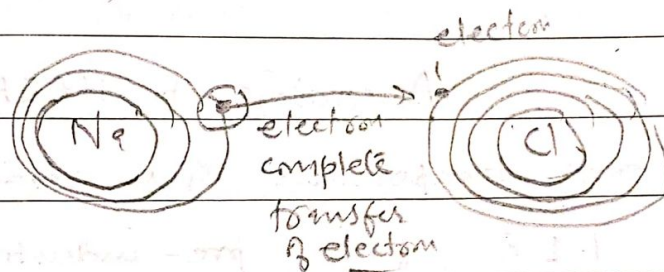 electron
Na
Cl
electron
complete
transfer
of electron